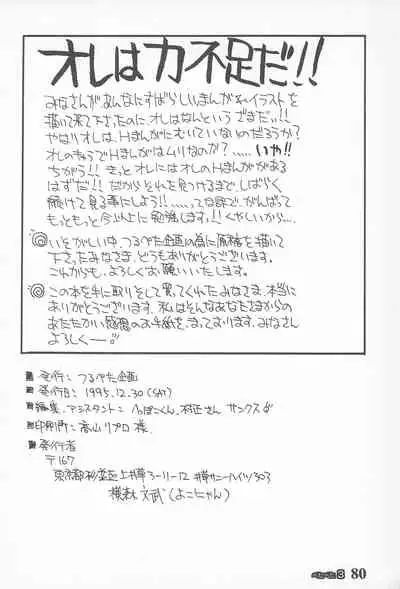 オレは力不足だ!!
みなさんがあんなにすばらしいまんがやイラストを
描いて来て下さったのに、オレはなんという ざまだッ!!
やはりオレは、Hまんがにむいていないのだろうか?
オレのキョウでHまんがはムリなのか?‥‥‥いや!!
ちがう!! きっとオレにはオレのHまんががある
はずだ!! だからそれを見つけるまで、しばらく
続けて見る事にしよう!!‥‥てな訳で、がんばって
もっともっと今以上に勉強します!! くやしいから…
◎いそがしい中、つるぺた企画の為に原稿を描いて
下さったみなさま、どうもありがとうございます。
これからも、よろしくお願いいたします。
◎この本を手に取りそして買ってくれたみなさま、本当に
ありがとうございます。私はそんなあなたさまからの
あたたかい感想のお手紙を、まっております。みなさん
よろしくー。
■発行:つるぺた企画
■発行日:1995.12.30(SAT)
■編集、アシスタント:しっぽこくん、村正さん サンクス
■印刷所:高山リプロ 様
■発行者
〒167
東京都杉並区上井草3-11-12 井草サニーハイツ303
横森 文武(よこにゃん)
ぺたぺた3 80